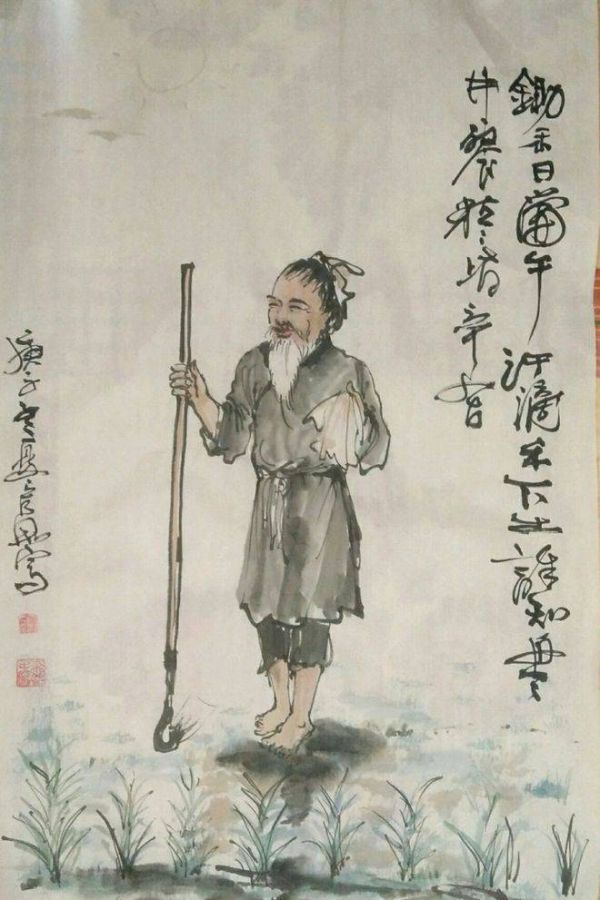 鋤禾日當午汗滴禾下土誰知盤
中餐粒々皆辛苦
庚子夏寫